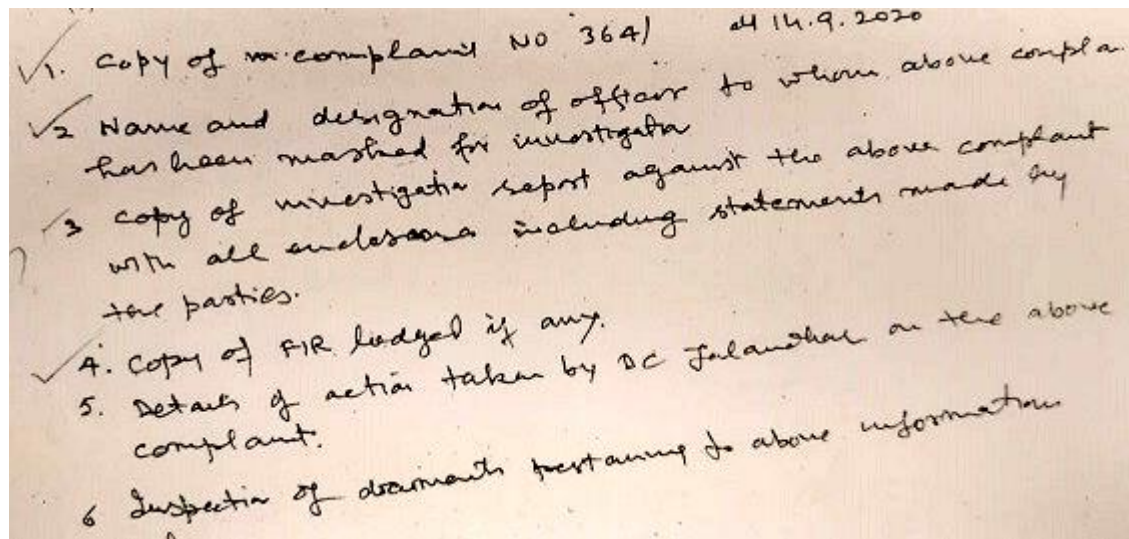 1. Copy of complaint No 3641 dt 14.9.2020
2 Name and designation of officer to whom above compla
has been marked for investigation
3 Copy of investigation report against the above complaint
with all enclosures including statements made by
the parties.
4. Copy of FIR lodged if any.
5. Details of action taken by DC Jalandhar on the above
complaint.
6 Inspection of documents pertaining to above information